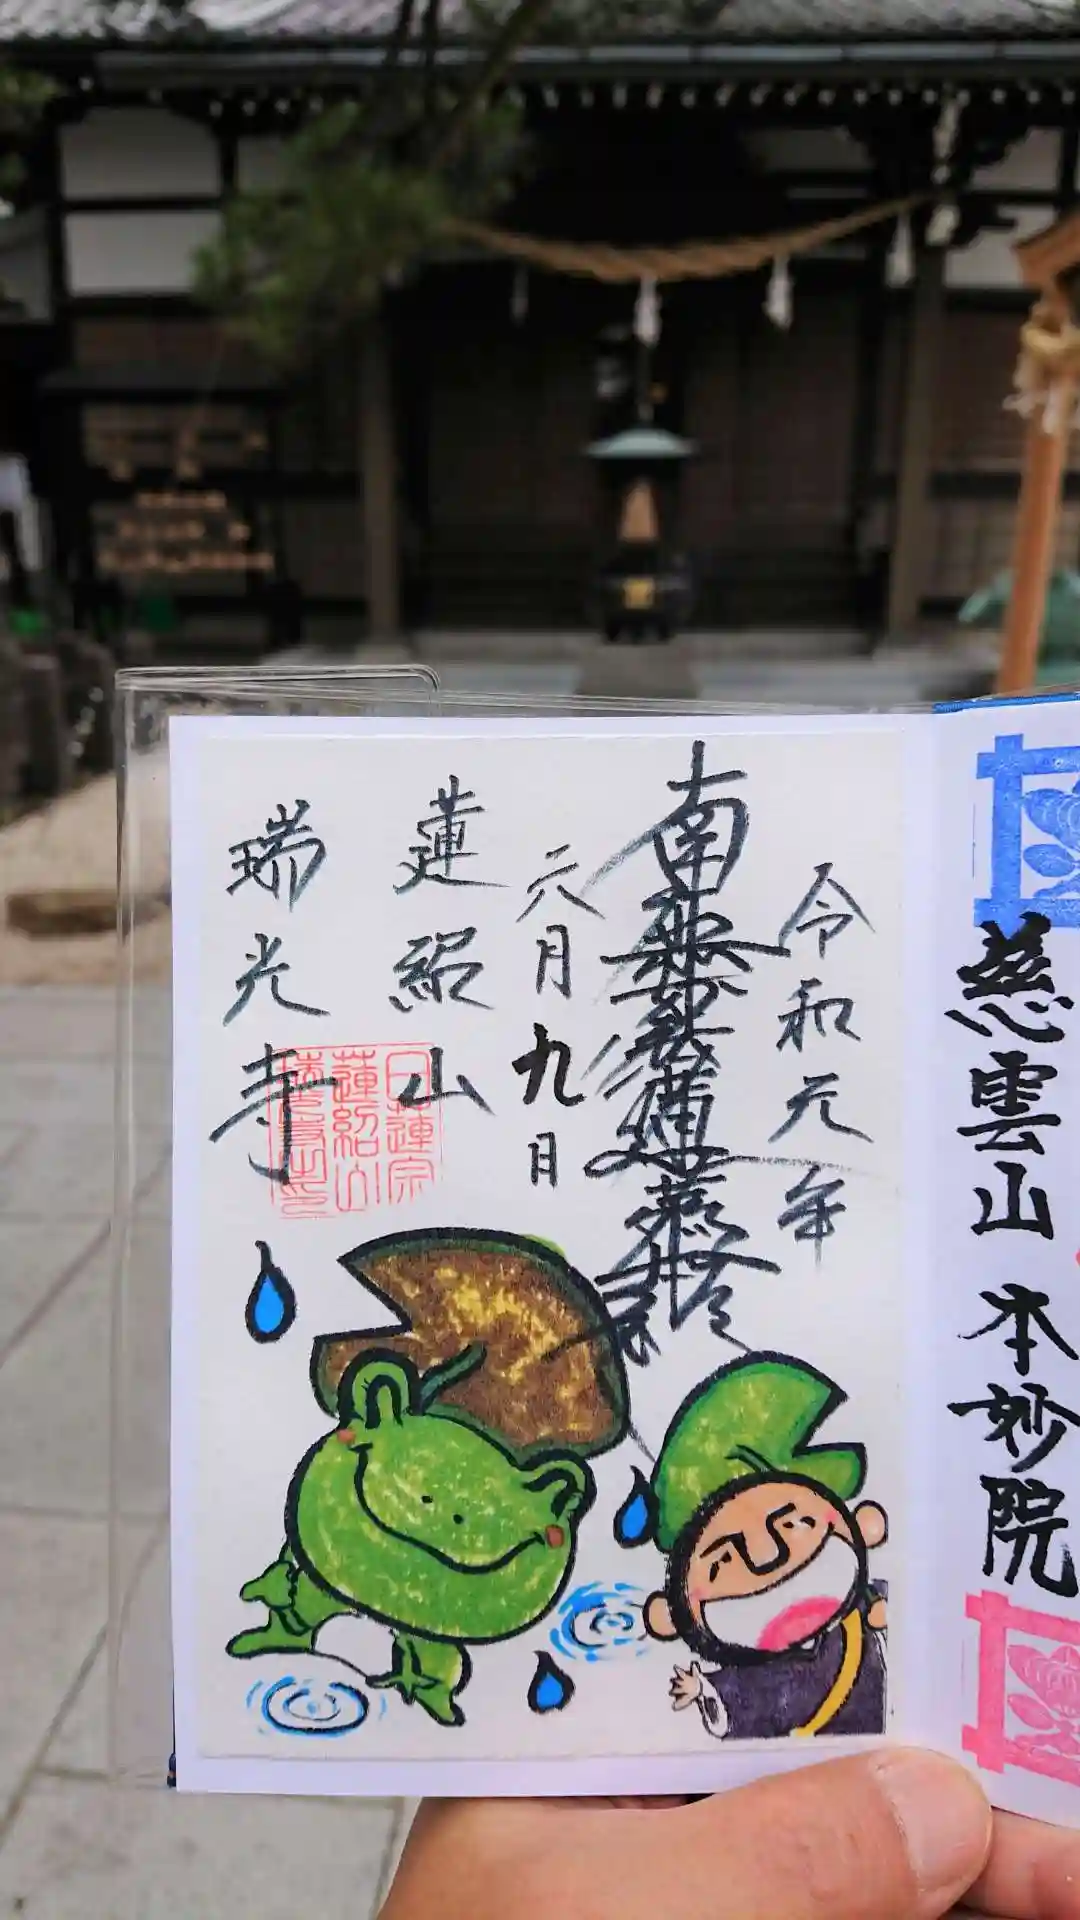 慈雲山 本妙院
令和元年
南無妙法蓮華経
六月九日
蓮紹山
瑞光寺
日蓮宗
蓮紹山